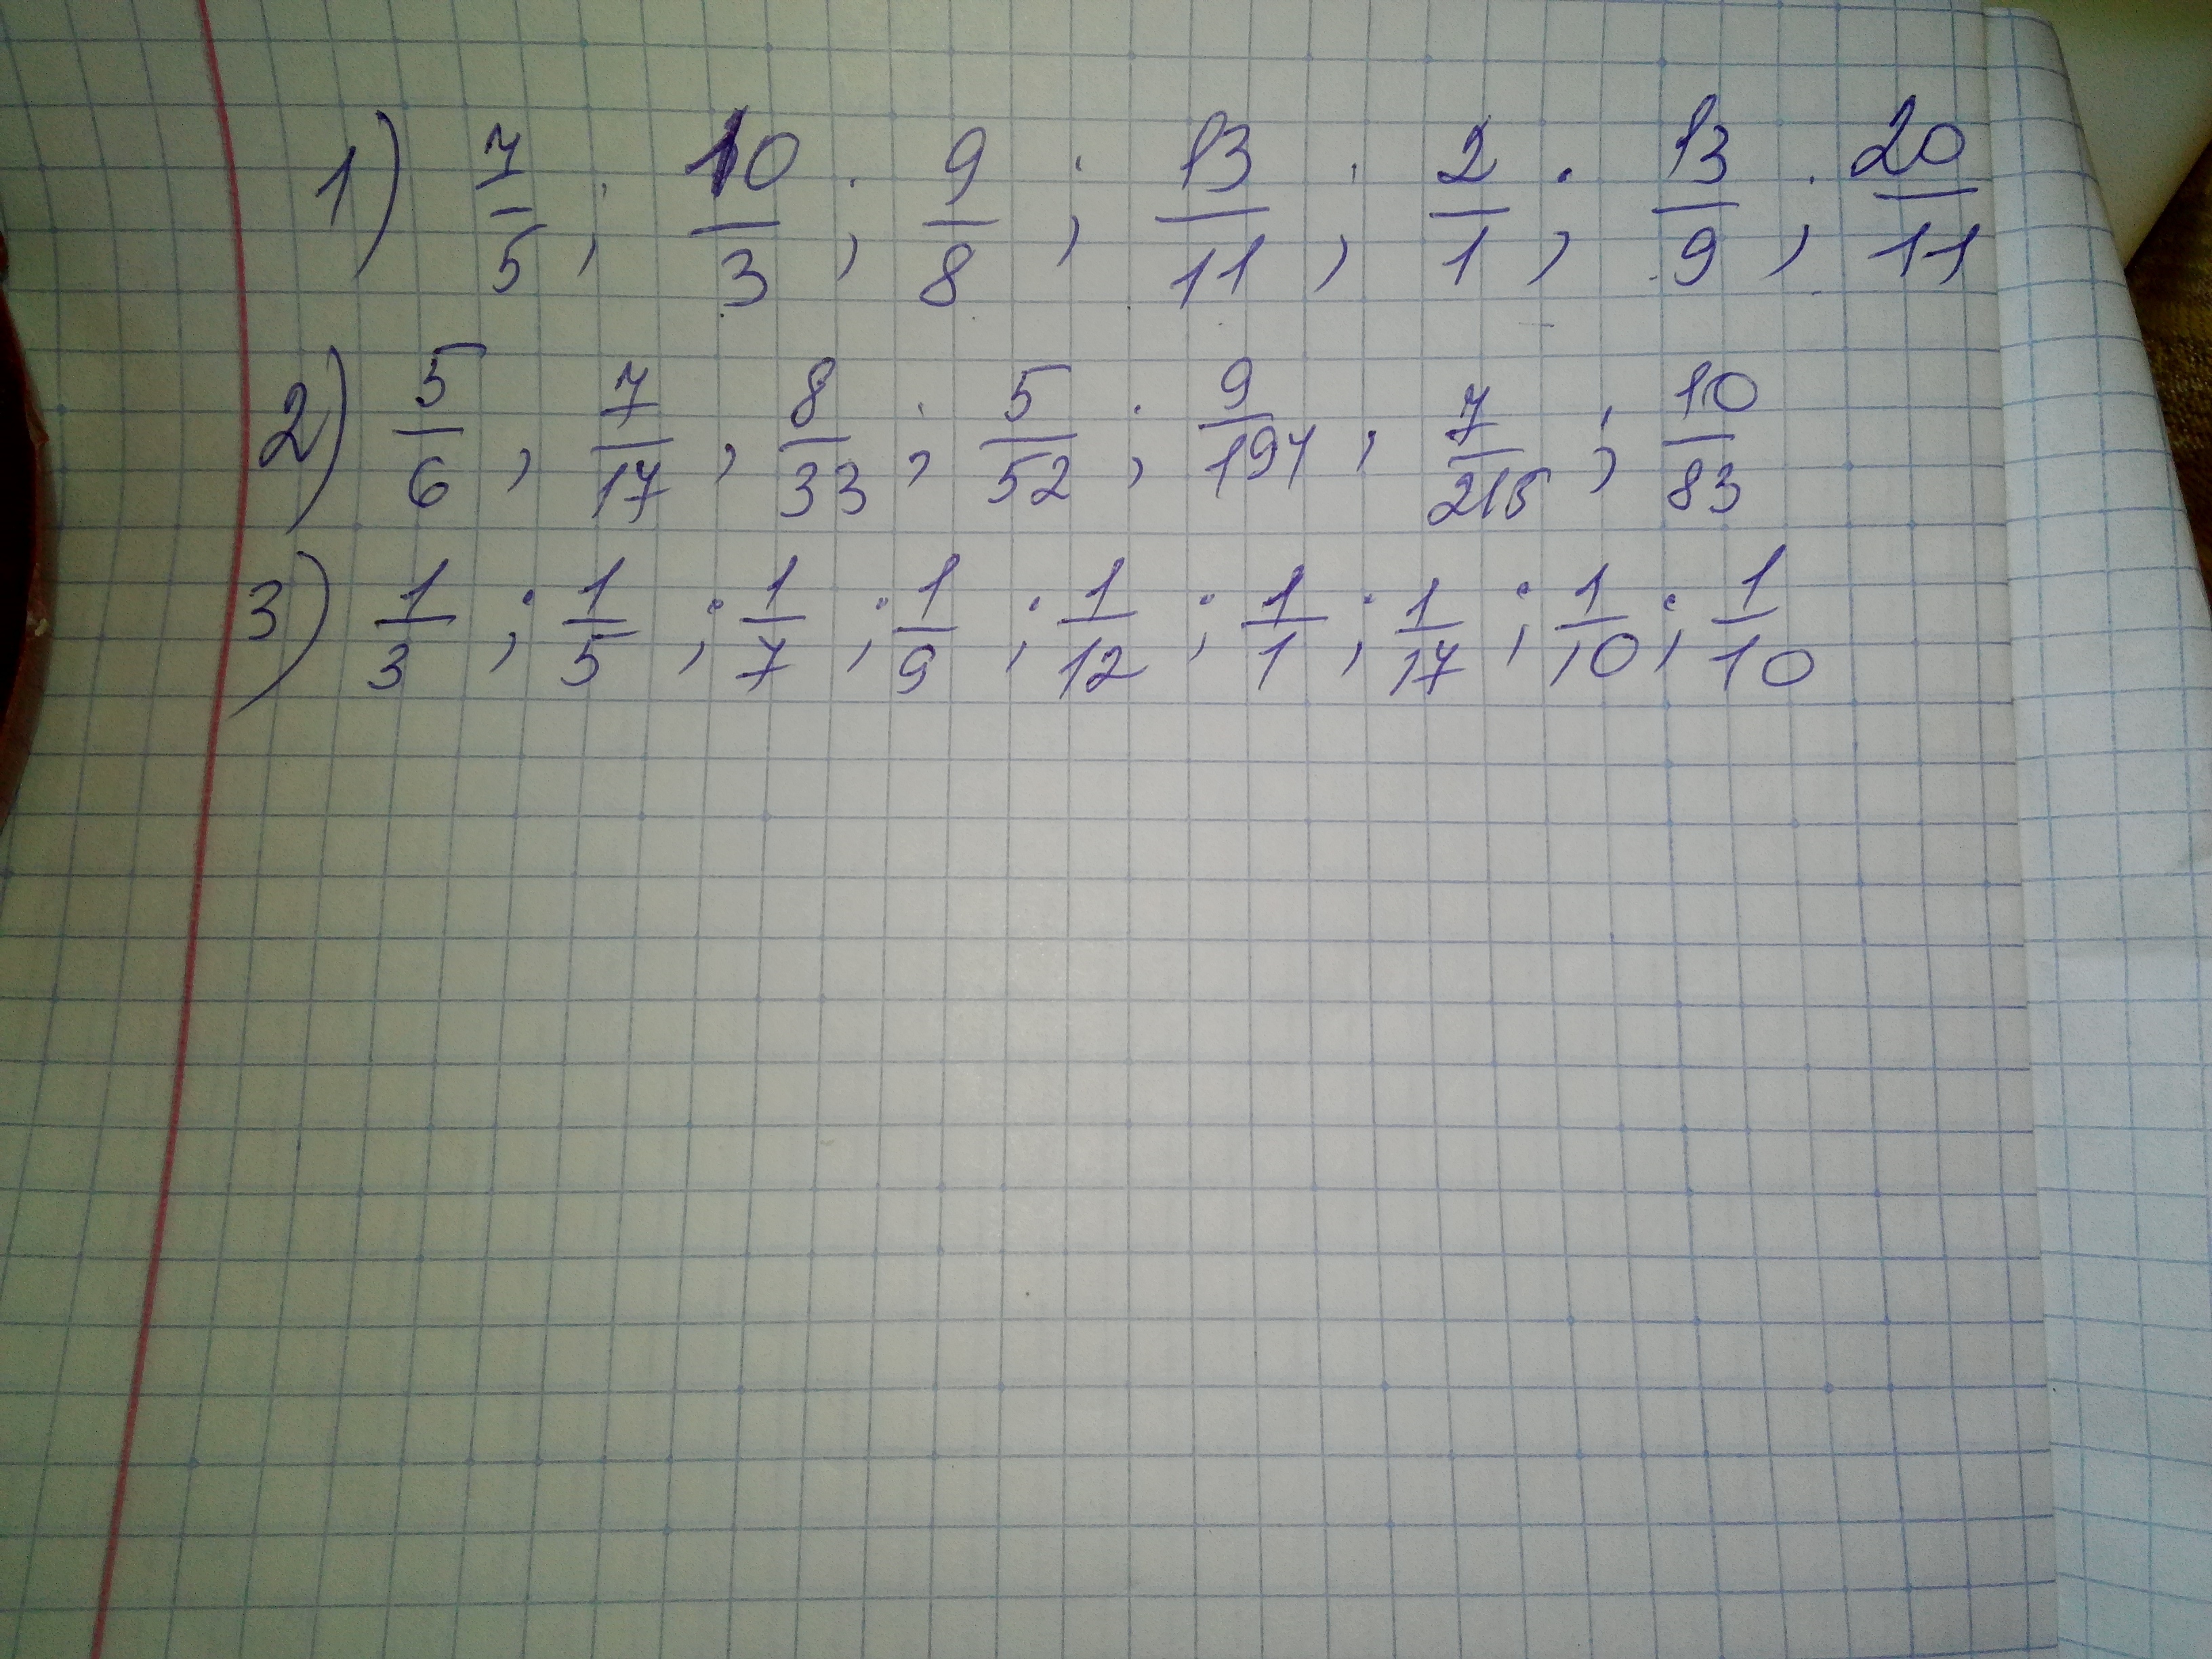 1) 7/5 ; 10/3 ; 9/8 ; 13/11 ; 2/1 ; 13/9 ; 20/11
2) 5/6 , 7/17 , 8/33 ; 5/52 ; 9/191 , 7/215 ; 10/83
3) 1/3 ; 1/5 ; 1/7 ; 1/9 ; 1/12 ; 1/1 ; 1/17 ; 1/10 ; 1/10